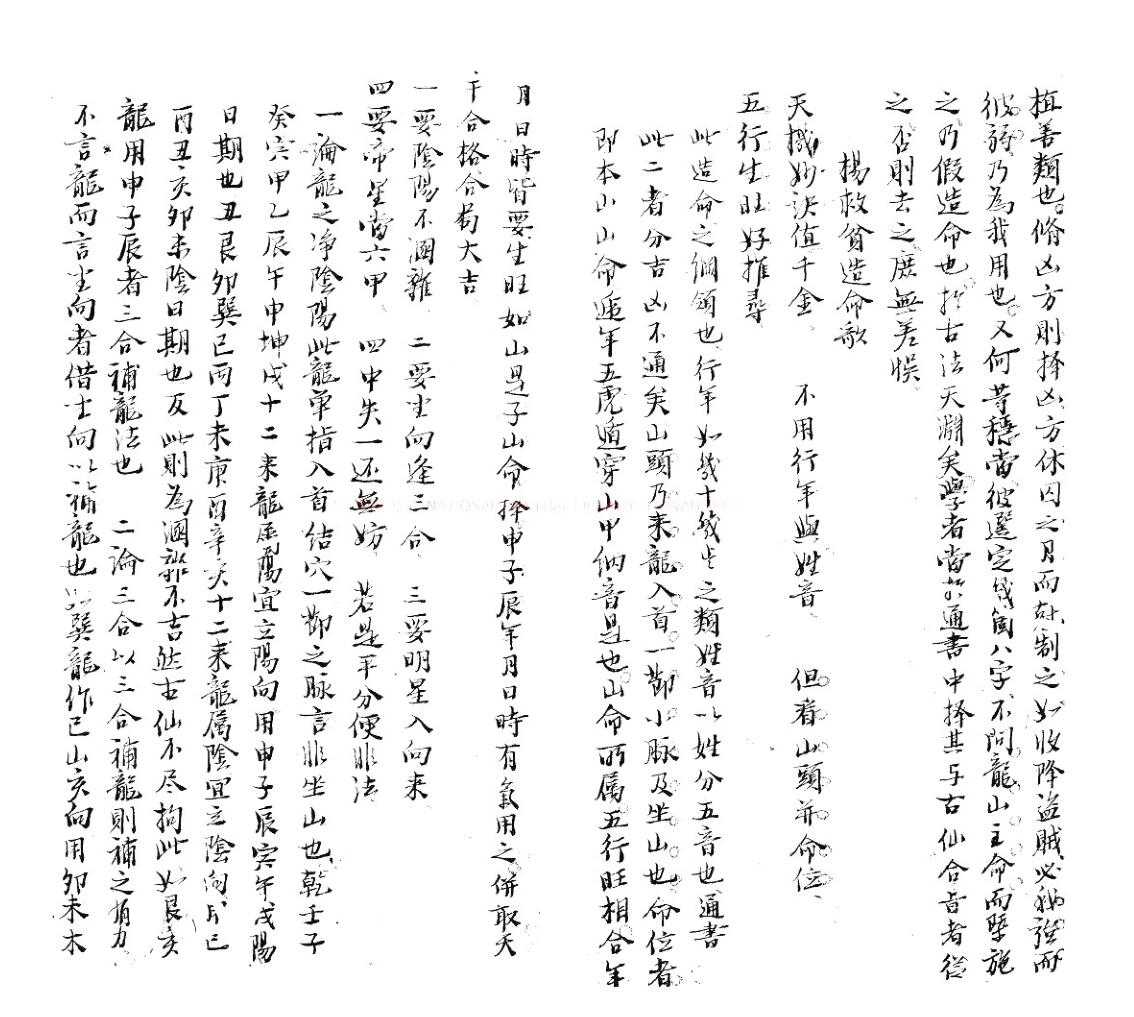 植善類也。脩凶方則择凶方休囚之月而尅制之如收降盗賊必我強而
彼弱乃為我用也。又何等穩當彼選定幾箇八字不问龍山主命而槩施
之乃假造命也扵古法天淵矣學者當扵通書中择其与古仙合旨者從
之否則去之庶無差悮
楊救貧造命歌
天機妙决值千金 不用行年與姓音 但看山頭并命位
五行生旺好推尋
此造命之綱領也行年如幾十幾歩之類姓音以姓分五音也通書
此二者分吉凶不通矣山頭乃来龍入首一節小脉及坐山也命位者
即本山山命逓年五虎遁穿山甲纳音是也山命所属五行旺相合年
月日時皆要生旺如山是子山命择申子辰年月日時有氣用之併取天
干合格合局大吉
一要陰陽不溷雜 二要坐向逢三合 三要明星入向来
四要帝星當六甲 四中失一还無妨 若是平分便非法
一論龍之净陰陽此龍单指入首结穴一節之脉言非坐山也乾壬子
癸寅甲乙辰午申坤戌十二来龍屬陽宜立陽向用申子辰寅午戌陽
日期也丑艮卯巽巳丙丁未庚酉辛亥十二来龍属陰宜立陰向用巳
酉丑亥卯未陰日期也反此則為溷雜不吉然古仙不尽拘此如艮亥
龍用申子辰者三合補龍法也 二論三合以三合補龍則補之有力
不言龍而言坐向者借士向以補龍也如巽龍作巳山亥向用卯未木